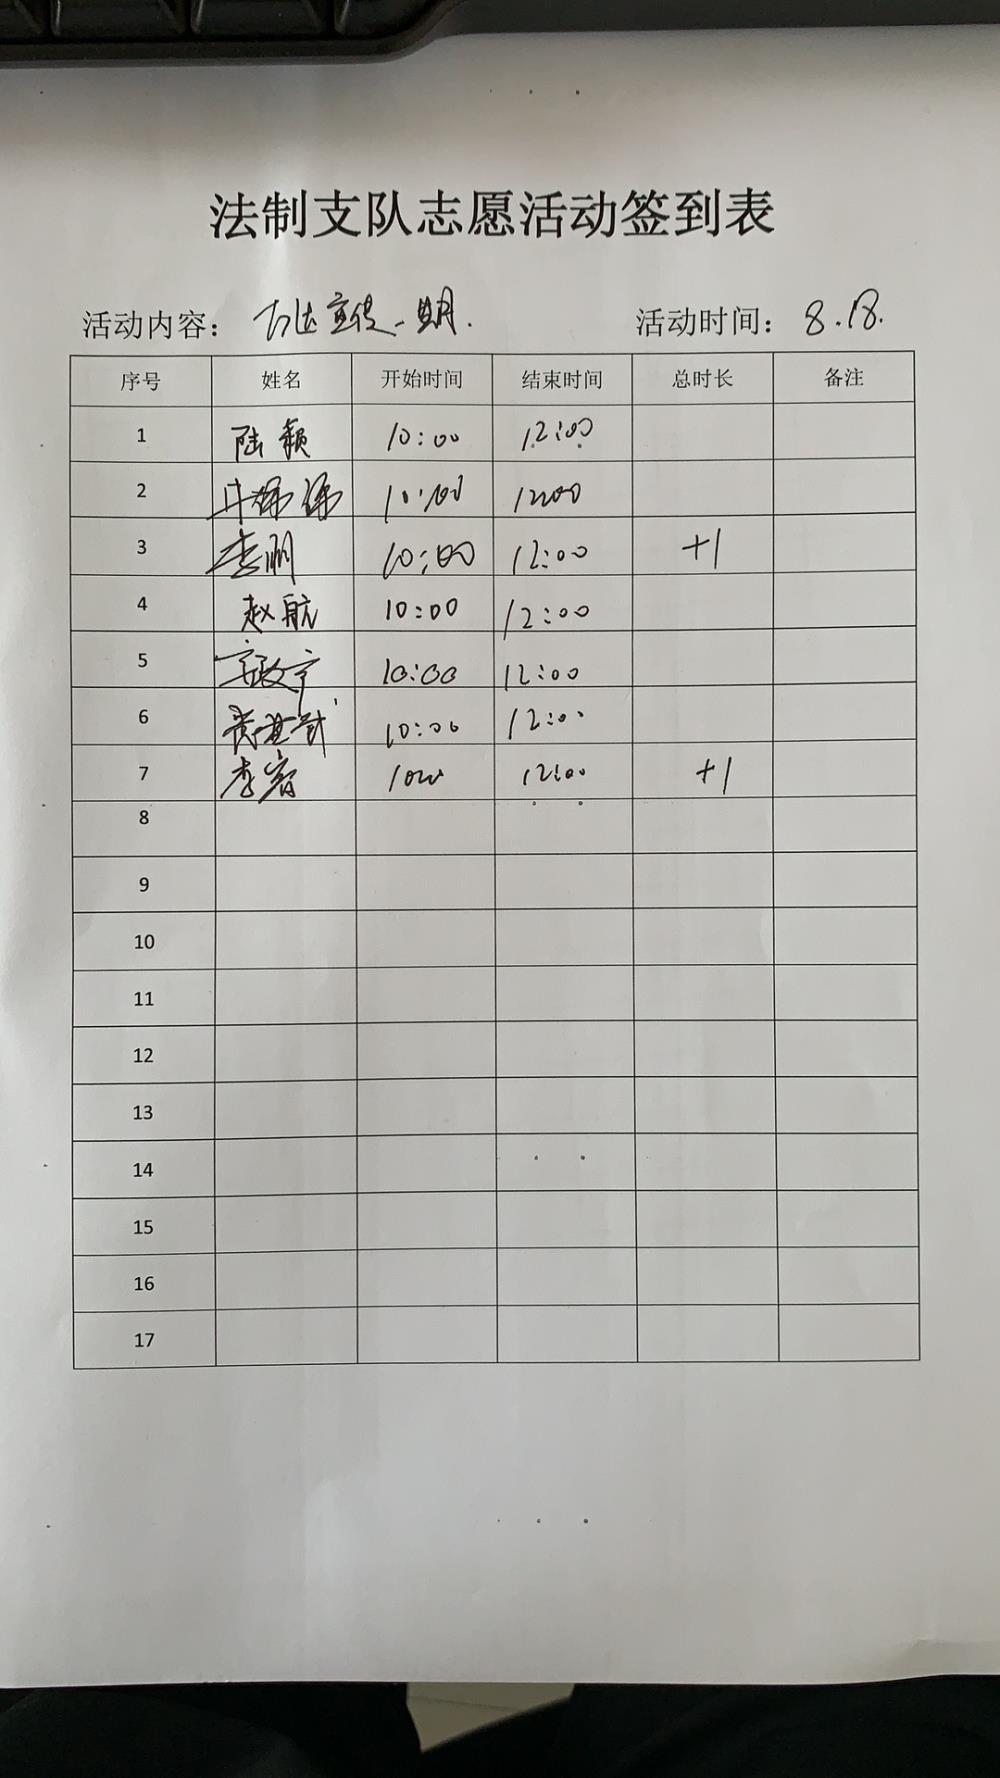 法制支队志愿活动签到表
活动内容： 万达宣传一期. 活动时间： 8.18.
序号 姓名 开始时间 结束时间 总时长 备注
1 陆颖 10:00 12:00
2 10:00 1200
3 李丽 10:00 12:00 +1
4 赵航 10:00 12:00
5 10:00 12:00
6 10:00 12:00
7 李睿 1000 12:00 +1
8
9
10
11
12
13
14
15
16
17